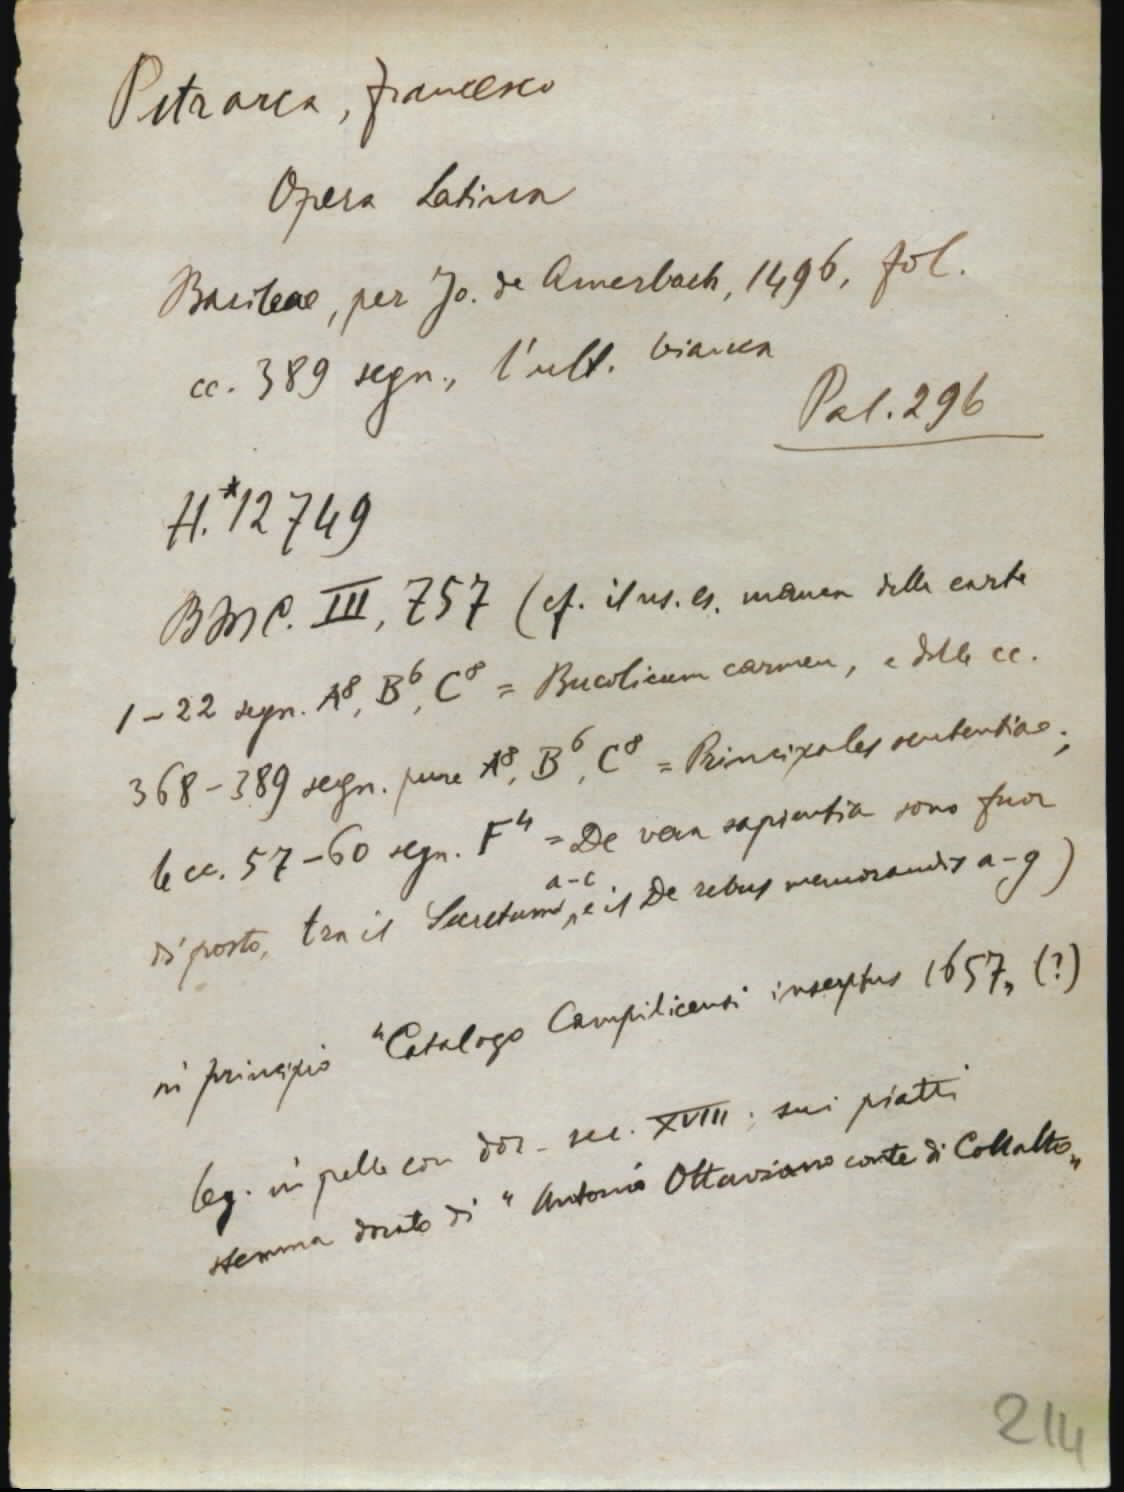 Petrarca, Francesco
Opera Latina
Basileae, per Jo. de Amerbach, 1496, fol.
cc. 389 segn., l'ult. bianca
Pal. 296
H.*12749
BMC. III, 757 (cf. il ns. es. manca delle carte
1-22 segn. A⁸, B⁶, C⁸ = Bucolicum carmen, e delle cc.
368-389 segn. pure A⁸, B⁶, C⁸ = Principales sententiae;
le cc. 57-60 segn. F⁴ = De vera sapientia sono fuor
di posto, tra il Secretum a-c, e il De rebus memorandis a-g)
in principio "Catalogo Campilicensi inscriptus 1657" (?)
leg. in pelle con dor. sec. XVIII; sui piatti
stemma dorato di "Antonio Ottaviano conte di Collalto"
214